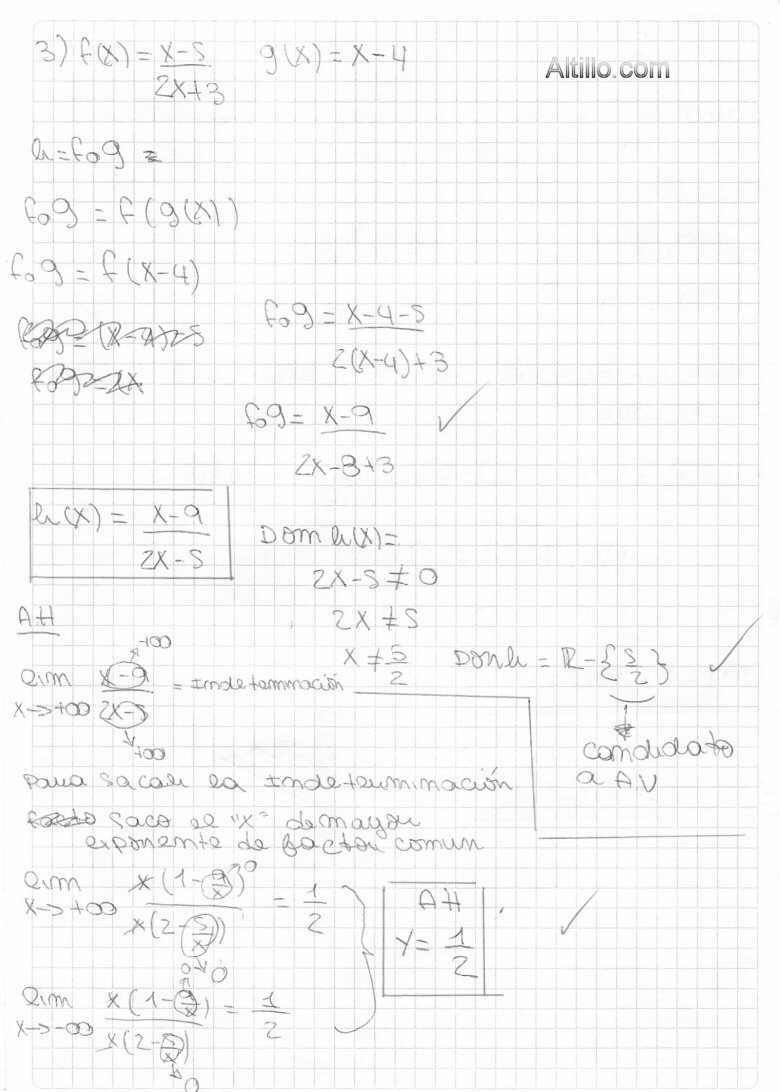 3) f(x) = x-5 / 2x+3   g(x) = x-4
Altillo.com
h = fog =
fog = f(g(x))
fog = f(x-4)
fog = x-4-5 / 2(x-4)+3
fog = x-9 / 2x-8+3 ✓
h(x) = x-9 / 2x-5
Dom h(x) =
2x-5 ≠ 0
2x ≠ 5
x ≠ 5/2   Dom h = R - {5/2} ✓
candidato
a AV
AH
lim x→+∞ x-9 / 2x-5 = Indeterminación
+∞
+∞
para sacar la Indeterminación
saco el "x" de mayor
exponente de factor comun
lim x→+∞ x(1-9/x) / x(2-5/x) = 1/2
0
0
AH
y = 1/2 ✓
lim x→-∞ x(1-9/x) / x(2-5/x) = 1/2
0
0